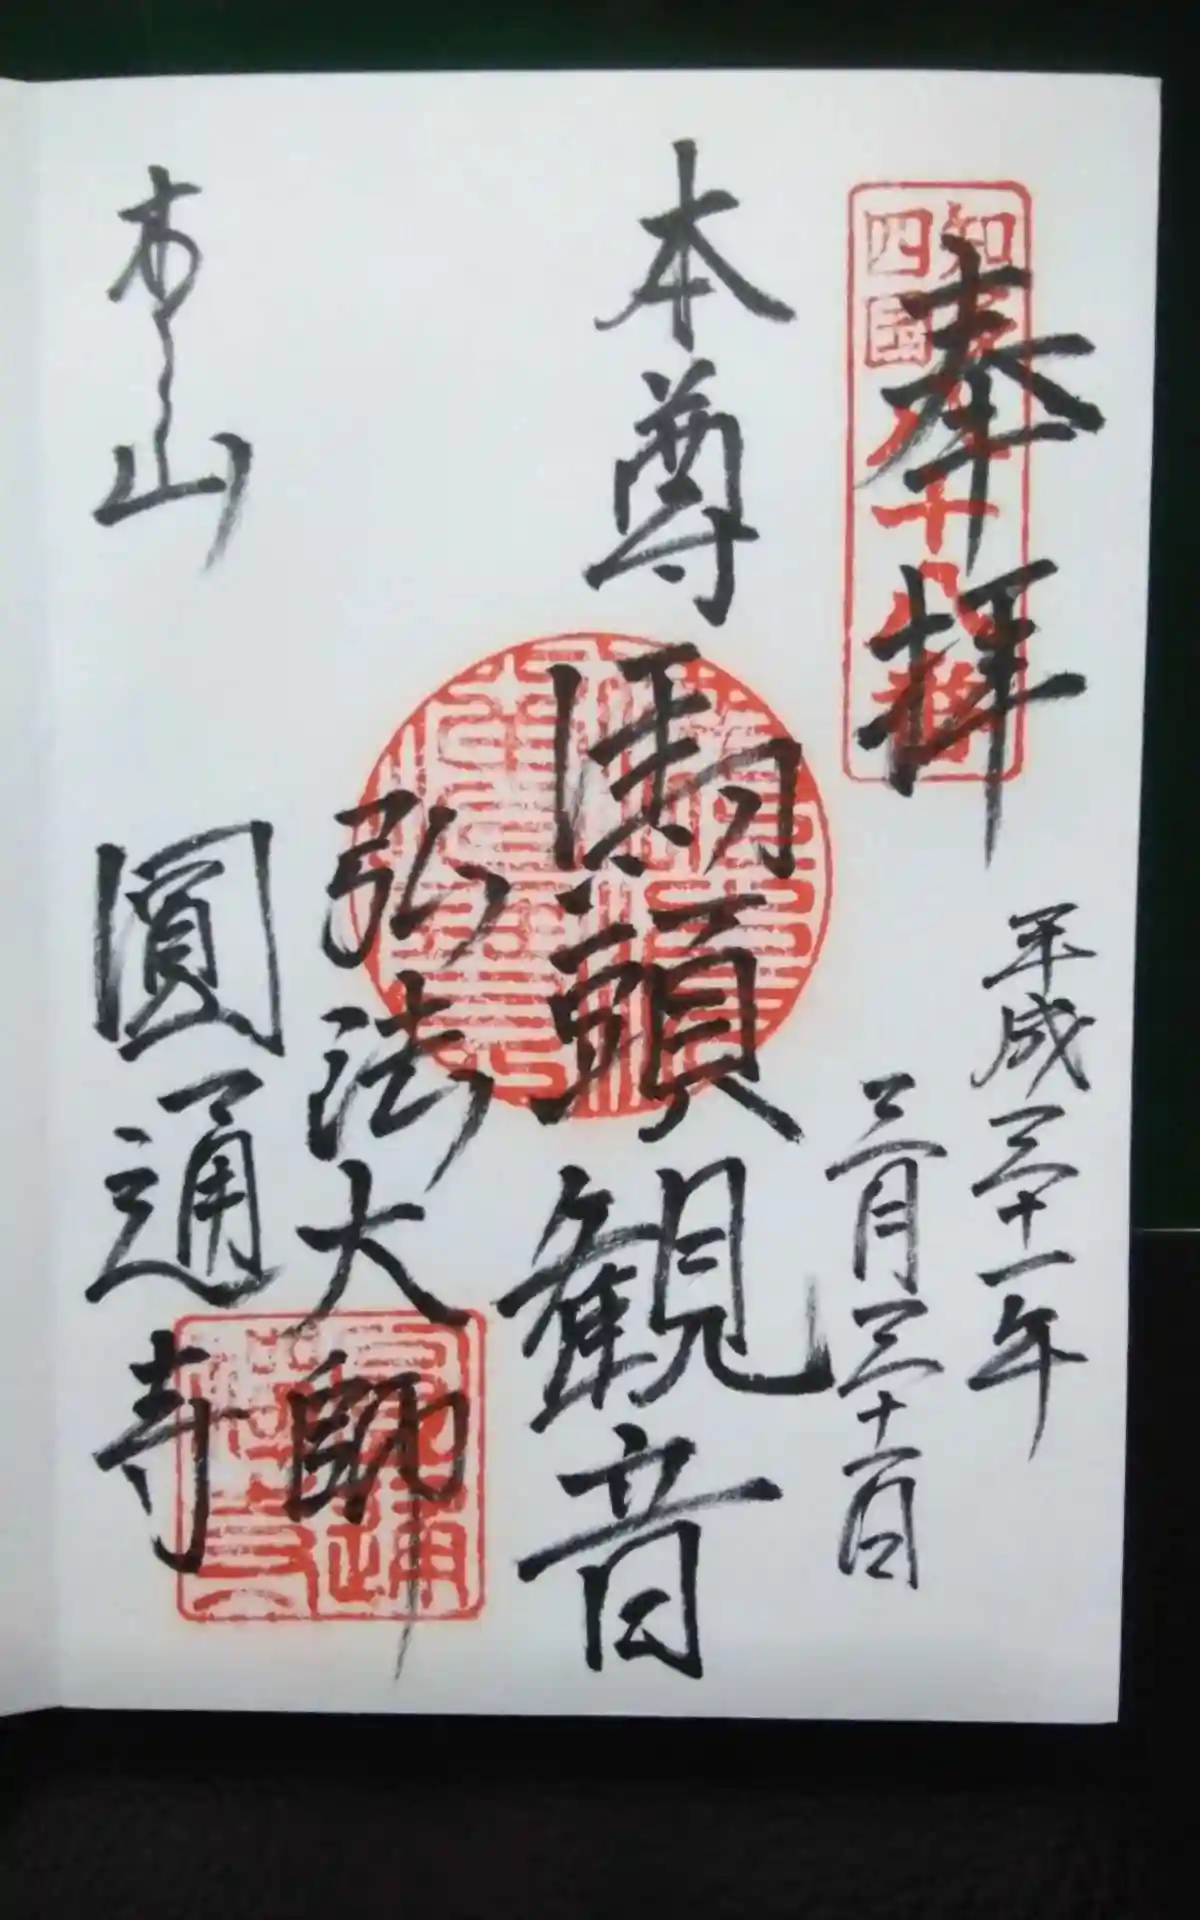 奉拝
知多
四國
八十八番
平成三十一年
三月三十一日
本尊馬頭観音
弘法大師
木之山
圓通寺